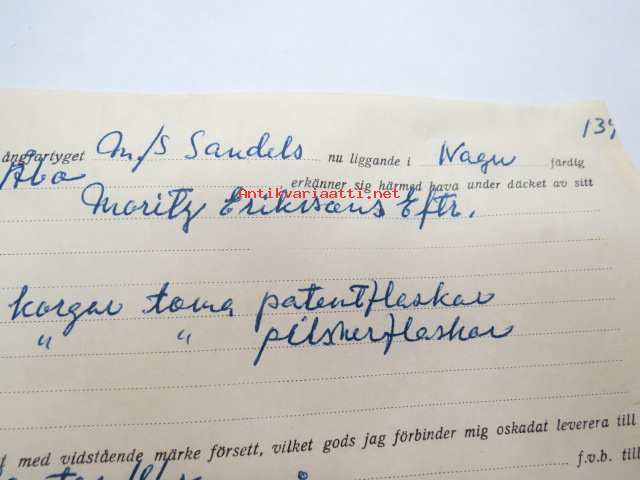 139
ångfartyget M/S Sandels nu liggande i Nagu färdig
Åbo erkänner sig härmed hava under däcket av sitt
Antikvariaatti.net
Moritz Erikssons Eftr.
korgar toma patentflaskor
" " pilsnerflaskor
med vidstående märke försett, vilket gods jag förbinder mig oskadat leverera till
f.v.b. till